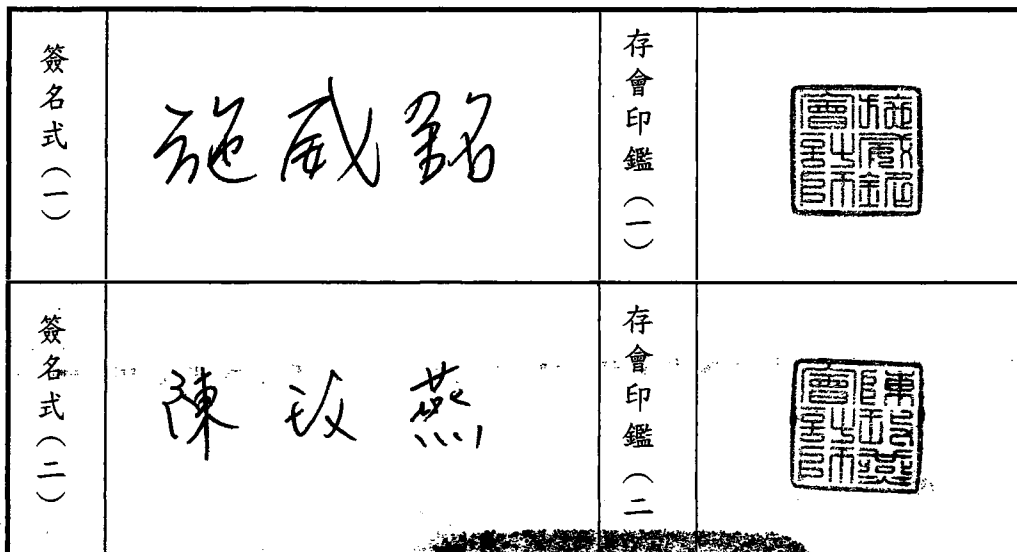 簽名式（一）
施威銘
存會印鑑（一）
施威銘
會計師
簽名式（二）
陳玫燕
存會印鑑（二
陳玫燕
會計師